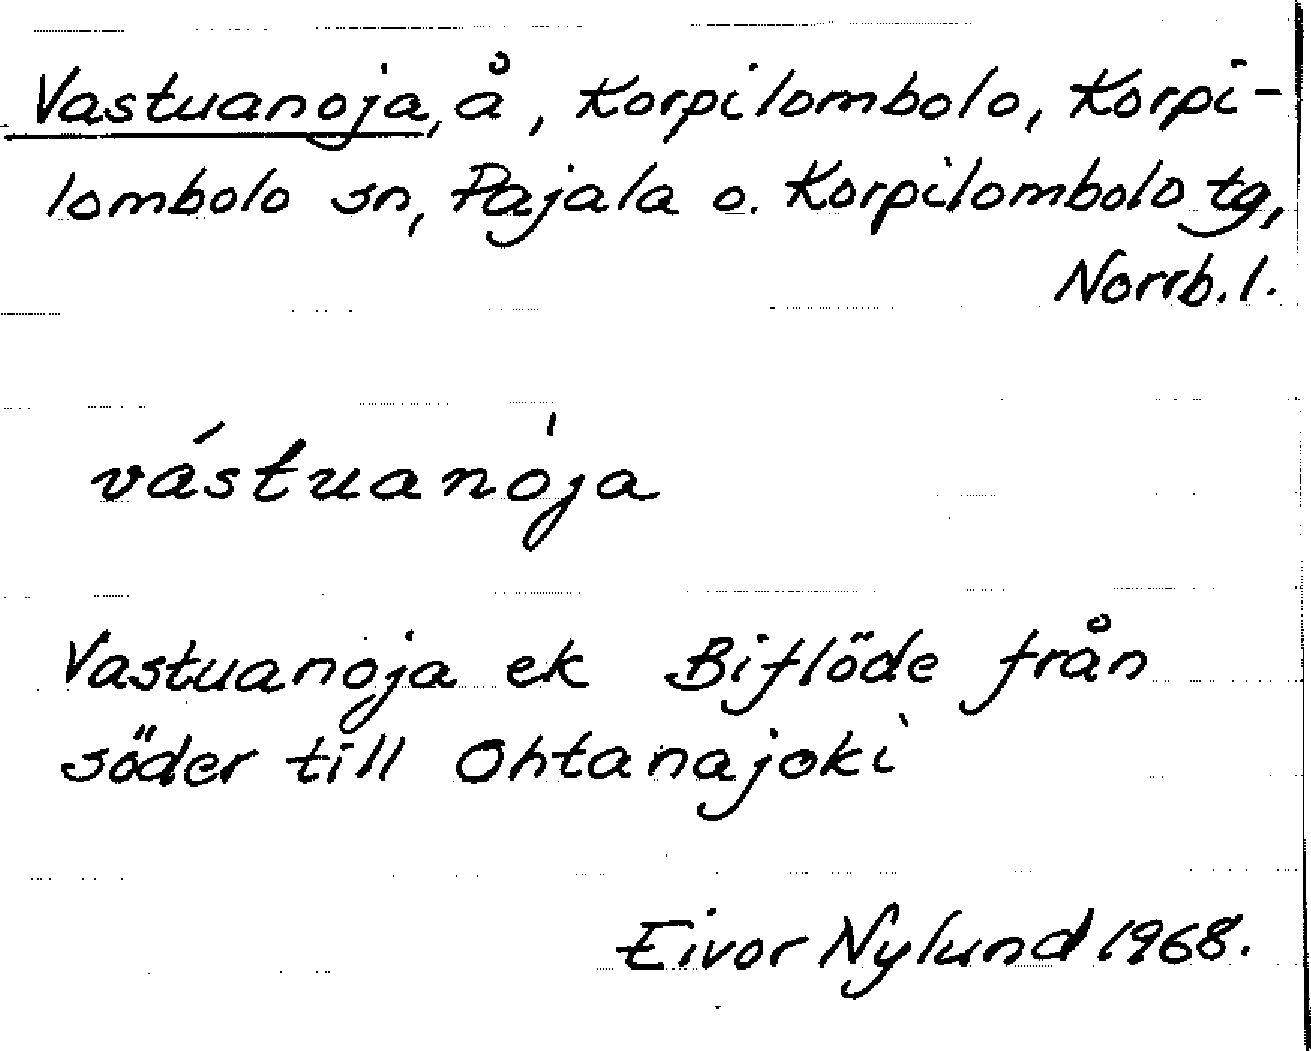 Vastuanoja, å, Korpilombolo, Korpi-
lombolo sn, Pajala o. Korpilombolo tg,
Norrb. l.
vástuanòja
Vastuanoja ek Biflöde från
söder till Ohtanajoki
Eivor Nylund 1968.